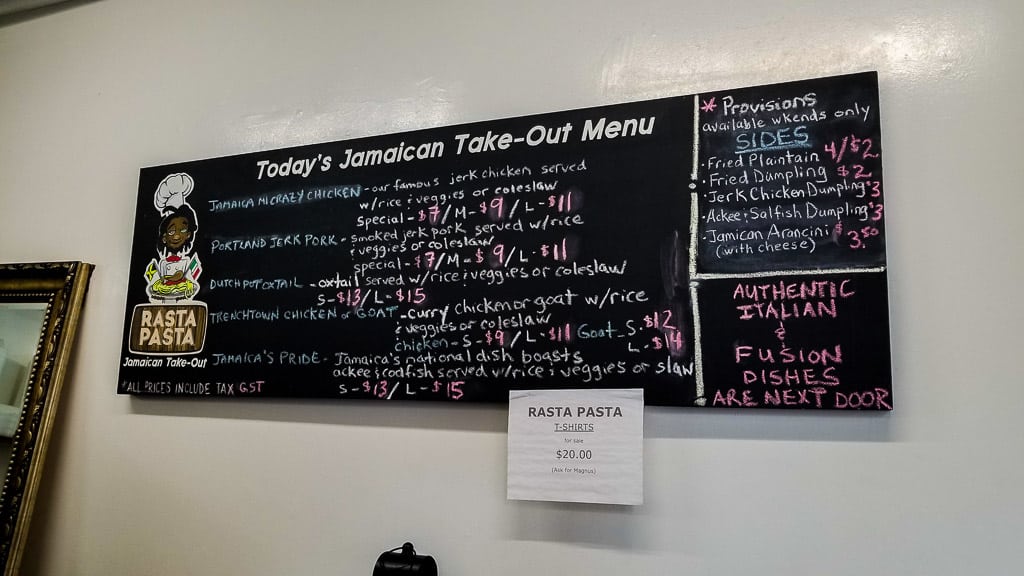 Today's Jamaican Take-Out Menu
JAMAICA MI CRAZY CHICKEN - our famous jerk chicken served
w/rice & veggies or coleslaw
special - $7/M - $9/L - $11
PORTLAND JERK PORK - smoked jerk pork served w/rice
& veggies or coleslaw
special - $7/M - $9/L - $11
DUTCH POT OXTAIL - oxtail served w/rice & veggies or coleslaw
S - $13/L - $15
TRENCHTOWN CHICKEN or GOAT - curry chicken or goat w/rice
& veggies or coleslaw
chicken - S - $9/L - $11 Goat - S - $12
L - $14
JAMAICA'S PRIDE - Jamaica's national dish boasts
ackee & codfish served w/rice & veggies or slaw
S - $13/L - $15
RASTA
PASTA
Jamaican Take-Out
*ALL PRICES INCLUDE TAX GST
* Provisions
available wkends only
SIDES
· Fried Plaintain 4/$2
· Fried Dumpling $2
· Jerk Chicken Dumpling $3
· Ackee & Salfish Dumpling $3
· Jamican Arancini $3.50
(with cheese)
AUTHENTIC
ITALIAN
&
FUSION
DISHES
ARE NEXT DOOR
RASTA PASTA
T-SHIRTS
for sale
$20.00
(Ask for Magnus)